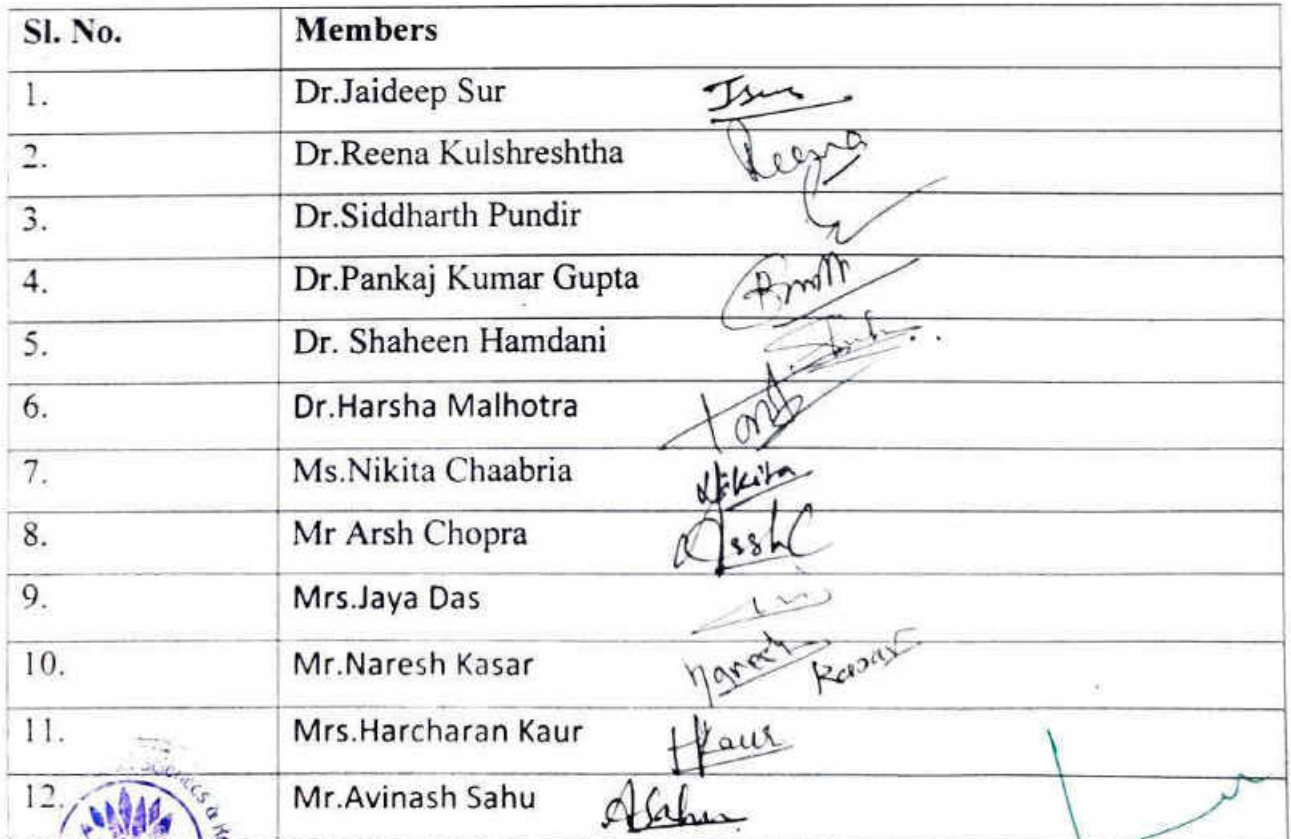 Sl. No. Members
1. Dr.Jaideep Sur Jsur
2. Dr.Reena Kulshreshtha Reena
3. Dr.Siddharth Pundir
4. Dr.Pankaj Kumar Gupta
5. Dr. Shaheen Hamdani
6. Dr.Harsha Malhotra
7. Ms.Nikita Chaabria Nikita
8. Mr Arsh Chopra
9. Mrs.Jaya Das
10. Mr.Naresh Kasar Naresh Kasar
11. Mrs.Harcharan Kaur HKaur
12. Mr.Avinash Sahu ASahu